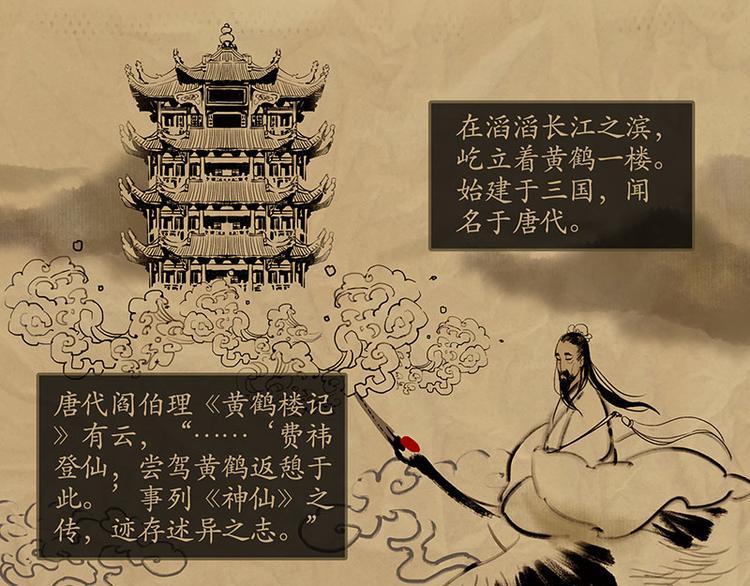 在滔滔长江之滨，
屹立着黄鹤一楼。
始建于三国，闻
名于唐代。
唐代阎伯理《黄鹤楼记
》有云，“……‘费祎
登仙；尝驾黄鹤返憩于
此。’事列《神仙》之
传，迹存述异之志。”